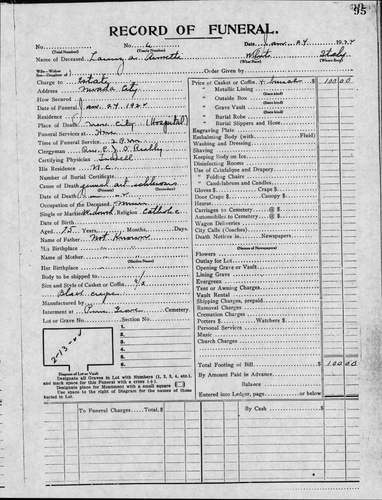 95
RECORD OF FUNERAL.
No. No. 6 Date Jan. 24 1922
(Total Number) (Yearly Number)
Name of Deceased White Italy
(What Race) (Where Born)
Wife—Widow
Son—Daughter of Order Given by
Charge to estate
Address Nevada City
How Secured
Date of Funeral Jan. 24 1922
Residence
Place of Death Nev. City (Hospital)
Funeral Services at Home
Time of Funeral Service 2 P.M.
Clergyman Rev. O'Reilly
Certifying Physician
His Residence N.C.
Number of Burial Certificate
Cause of Death general art sclerosis
Date of Death
Occupation of the Deceased Miner
Single or Married Widowed Religion Catholic
Date of Birth
Aged 75 Years, Months, Days.
Name of Father Not Known
His Birthplace
Name of Mother
(Maiden Name)
Her Birthplace
Body to be shipped to
Size and Style of Casket or Coffin
Black crepe
Manufactured by
Interment at Pine Grove Cemetery.
Lot or Grave No. Section No.
1.
2.
3.
4.
5.
6.
Diagram of Lot or Vault
Designate all Graves in Lot with Numbers (1, 2, 3, 4, etc.),
and mark space for this Funeral with a cross (+).
Designate place for Monument with a small square
Use space to the right of Diagram for the names of those
buried in Lot.
Price of Casket or Coffin & burial $ 100 00
Metallic Lining
(State kind)
" Outside Box
(State kind)
" Burial Robe
(State kind)
" Burial Slippers and Hose
Engraving Plate
Embalming Body (with Fluid)
Washing and Dressing
Shaving
Keeping Body on Ice
Disinfecting Rooms
Use of Catafalque and Drapery
" Folding Chairs
" Candelabrum and Candles
Gloves $ Crape $
Door Crape $ Canopy $
Hearse
Carriages to Cemetery @ $
Automobiles to Cemetery @ $
Wagon Deliveries @ $
City Calls (Coaches) @ $
Death Notices in Newspapers
(Names of Newspapers)
Flowers
Outlay for Lot
Opening Grave or Vault
Lining Grave
Evergreen
Tent or Awning Charges
Vault Rental
Shipping Charges, prepaid
Removal Charges
Cremation Charges
Porters $ Watchers $
Personal Services
Music
Church Charges
Total Footing of Bill $ 100 00
By Amount Paid in Advance
Balance
Entered into Ledger, page or below.
To Funeral Charges Total, $ By Cash $